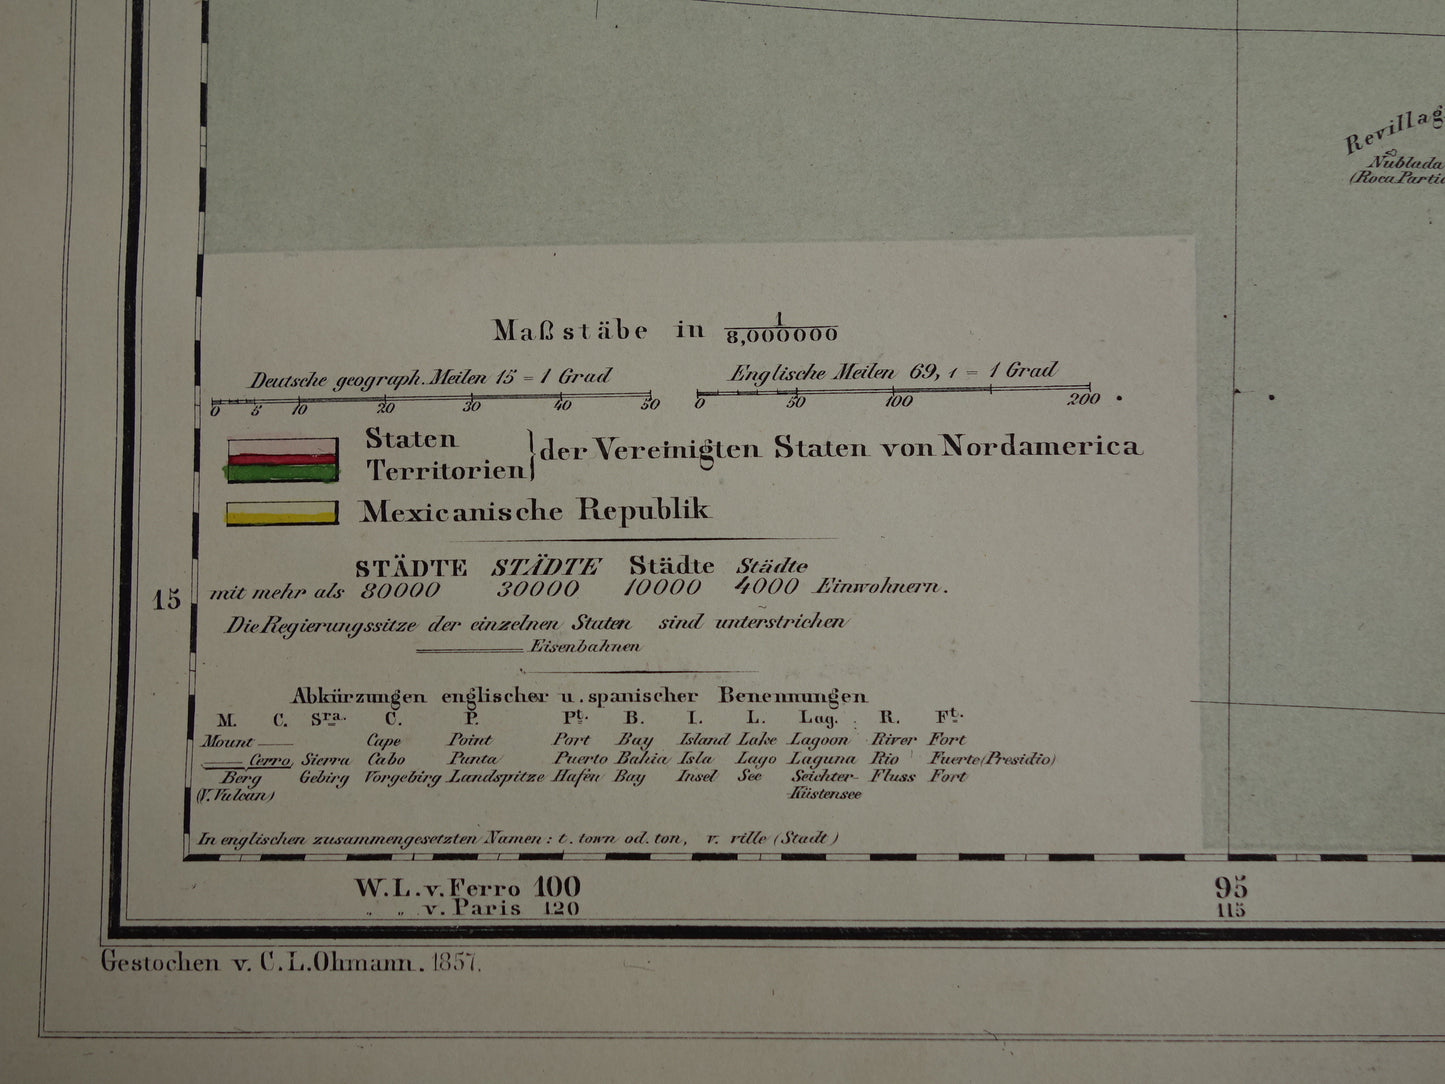 Revillag
Nublada
(Roca Partid
Maßstäbe in 1/8,000000
Deutsche geograph. Meilen 15 = 1 Grad
0 5 10 20 30 40 50
Englische Meilen 69,1 = 1 Grad
0 50 100 200
Staten
Territorien } der Vereinigten Staten von Nordamerica
Mexicanische Republik
STÄDTE STÄDTE Städte Städte
mit mehr als 80000 30000 10000 4000 Einwohnern.
15
Die Regierungssitze der einzelnen Staten sind unterstrichen
Eisenbahnen
Abkürzungen englischer u. spanischer Benennungen
M. C. Sra. C. P. Pt. B. I. L. Lag. R. Ft.
Mount Cape Point Port Bay Island Lake Lagoon River Fort
Cerro Sierra Cabo Punta Puerto Bahia Isla Lago Laguna Rio Fuerte (Presidio)
Berg Gebirg Vorgebirg Landspitze Hafen Bay Insel See Seichter- Fluss Fort
(V. Vulcan) Küstensee
In englischen zusammengesetzten Namen: t. town od. ton, v. ville (Stadt)
W.L.v. Ferro 100 95
" " v. Paris 120 115
Gestochen v. C.L. Ohmann. 1857.